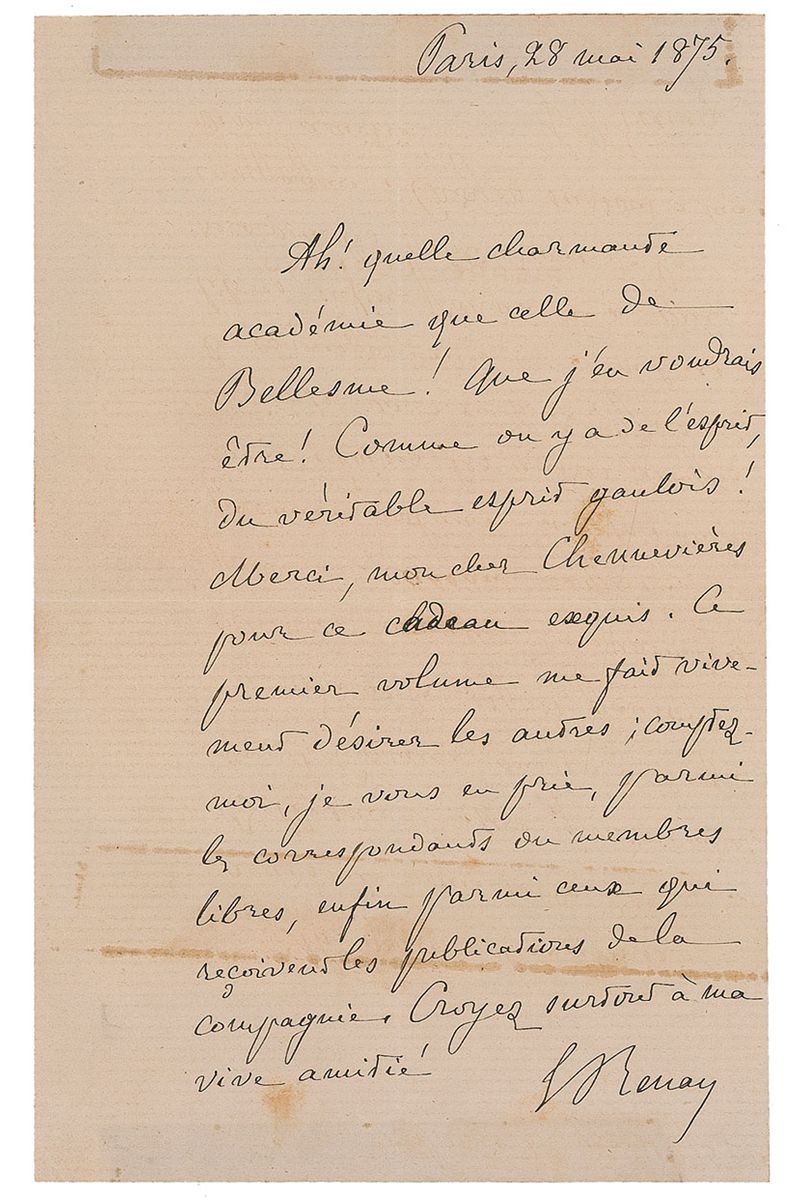 Paris, 28 mai 1875.
Ah! quelle charmante
académie que celle de
Bellesme! Que j'en voudrais
être! Comme on y a de l'esprit,
du véritable esprit gaulois!
Merci, mon cher Chennevières
pour ce cadeau exquis. Ce
premier volume me fait vive-
ment désirer les autres; comptez-
moi, je vous en prie, parmi
les correspondants ou membres
libres, enfin parmi ceux qui
reçoivent les publications de la
compagnie. Croyez surtout à ma
vive amitié
E Renan